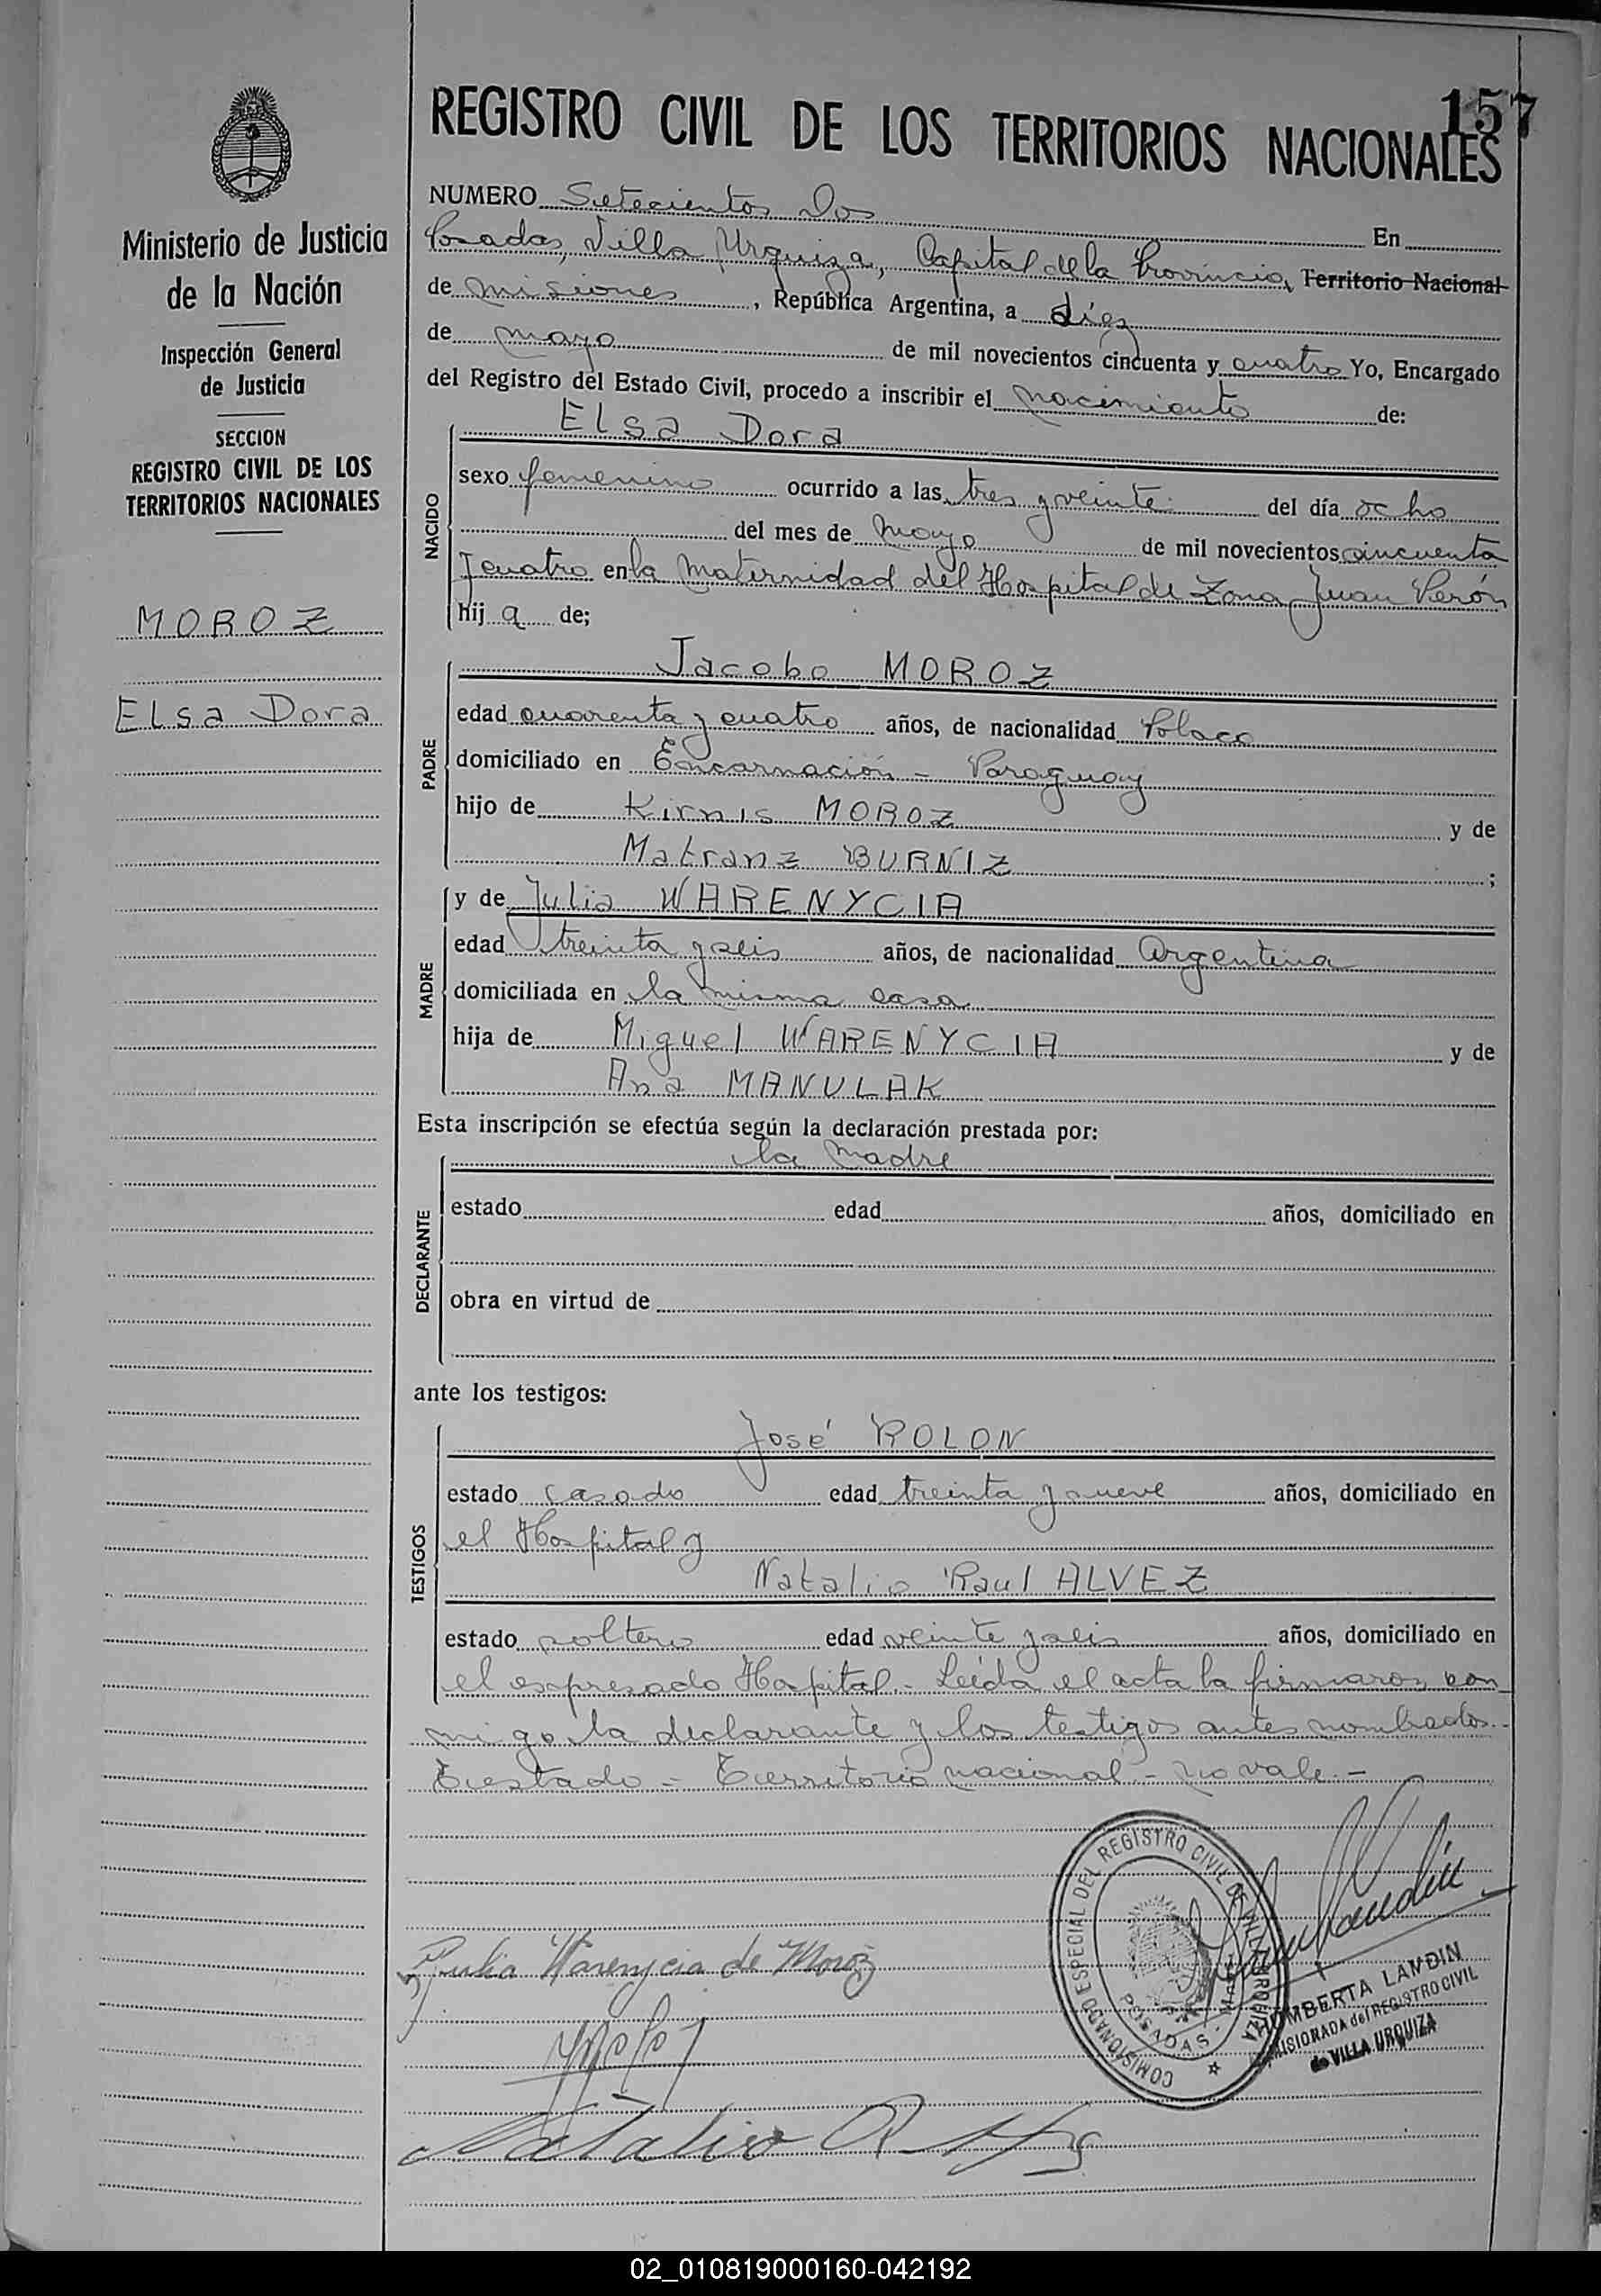 157
REGISTRO CIVIL DE LOS TERRITORIOS NACIONALES
Ministerio de Justicia
de la Nación
Inspección General
de Justicia
SECCION
REGISTRO CIVIL DE LOS
TERRITORIOS NACIONALES
MOROZ
Elsa Dora
NUMERO Setecientos Dos En
Posadas, Villa Urquiza, Capital de la Provincia, Territorio Nacional
de Misiones, República Argentina, a diez
de mayo de mil novecientos cincuenta y cuatro Yo, Encargado
del Registro del Estado Civil, procedo a inscribir el nacimiento de:
NACIDO
Elsa Dora
sexo femenino ocurrido a las tres y veinte del día ocho
del mes de Mayo de mil novecientos cincuenta
y cuatro en la Maternidad del Hospital de Zona Juan Perón
hij a de;
PADRE
Jacobo MOROZ
edad cuarenta y cuatro años, de nacionalidad Polaco
domiciliado en Encarnación - Paraguay
hijo de Kirnis MOROZ y de
Matranz BURNIZ ;
MADRE
y de Julia WARENYCIA
edad treinta y seis años, de nacionalidad Argentina
domiciliada en la misma casa
hija de Miguel WARENYCIA y de
Ana MANULAK
Esta inscripción se efectúa según la declaración prestada por:
DECLARANTE
la Madre
estado edad años, domiciliado en
obra en virtud de
ante los testigos:
TESTIGOS
José ROLON
estado casado edad treinta y nueve años, domiciliado en
el Hospital y
Natalio Raul ALVEZ
estado soltero edad veinte y seis años, domiciliado en
el expresado Hospital.- Leída el acta la firmaron con
migo la declarante y los testigos antes nombrados.-
Testado - Territorio nacional - no vale.-
COMISIONADO ESPECIAL DEL REGISTRO CIVIL DE VILLA URQUIZA
POSADAS
Julia Warenycia de Moroz
HUMBERTA LANDIN
COMISIONADA del REGISTRO CIVIL
de VILLA URQUIZA
Natalio R
02_010819000160-042192